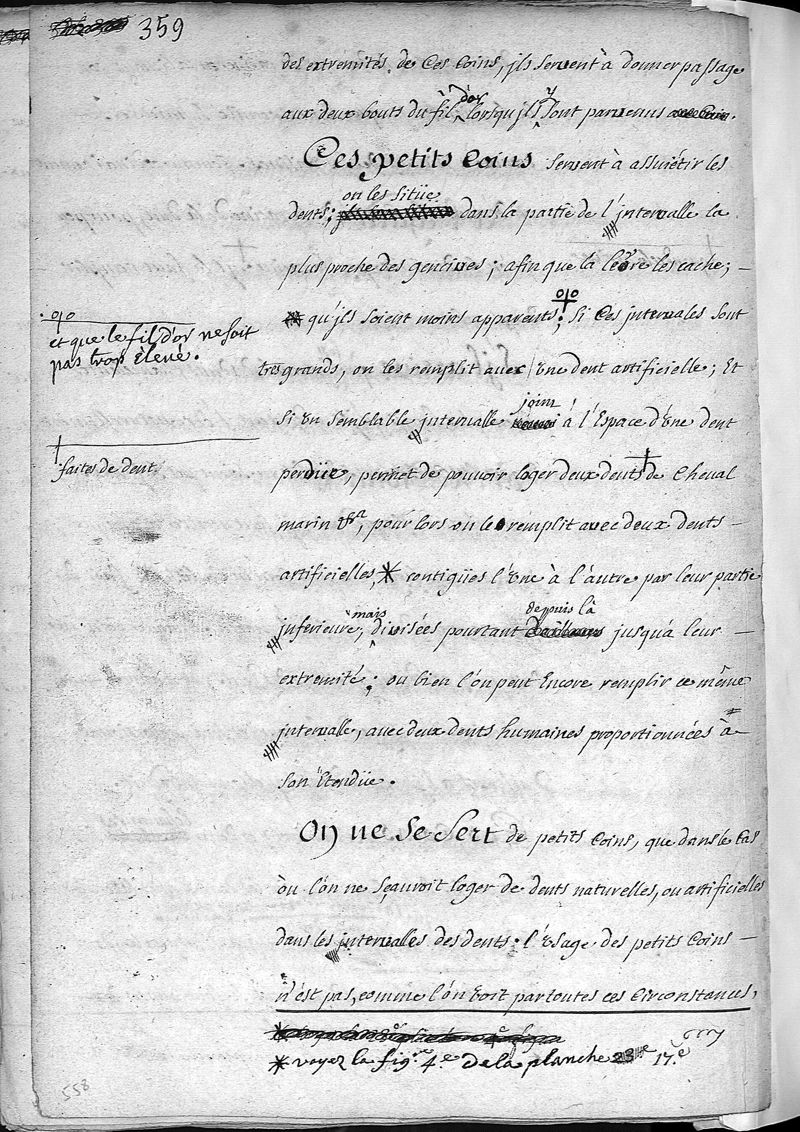 359
des extremités de Ces Coins, jls servent à donner passage
aux deux bouts du fil d'or lorsqu'jls y sont parvenus
Ces petits Coins servent à assuiétir les
on les sitüe
dents; dans la partie de l'jntervalle la
plus proche des gencives; afin que la levre les cache;
qu'jls soient moins apparents; si Ces jntervales sont
o|o
et que le fil d'or ne soit
pas trop élevé.
tres grands, on les remplit avec Vne dent artificielle; Et
joint
si Vn semblable jntervalle à l'Espace d'Vne dent
faites de dent
perdüe, permet de pouvoir loger deux dents de Cheval
marin &a, pour lors on le remplit avec deux dents
artificielles, * contigües l'Vne à l'autre par leur partie
mais depuis là
jnferieure; divisées pourtant jusqu'a leur
extremité; ou bien l'on peut Encore remplir ce même
jntervalle, avec deux dents humaines proportionnées à
son Etendüe.
On ne se sert de petits Coins, que dans le Cas
où l'on ne sçauroit loger de dents naturelles, ou artificielles
dans les jntervalles des dents: l'Vsage des petits Coins
n'est pas, comme l'on Voit par toutes ces Circonstances,
* voyez la fig.re 4.e de la planche 17.e
558